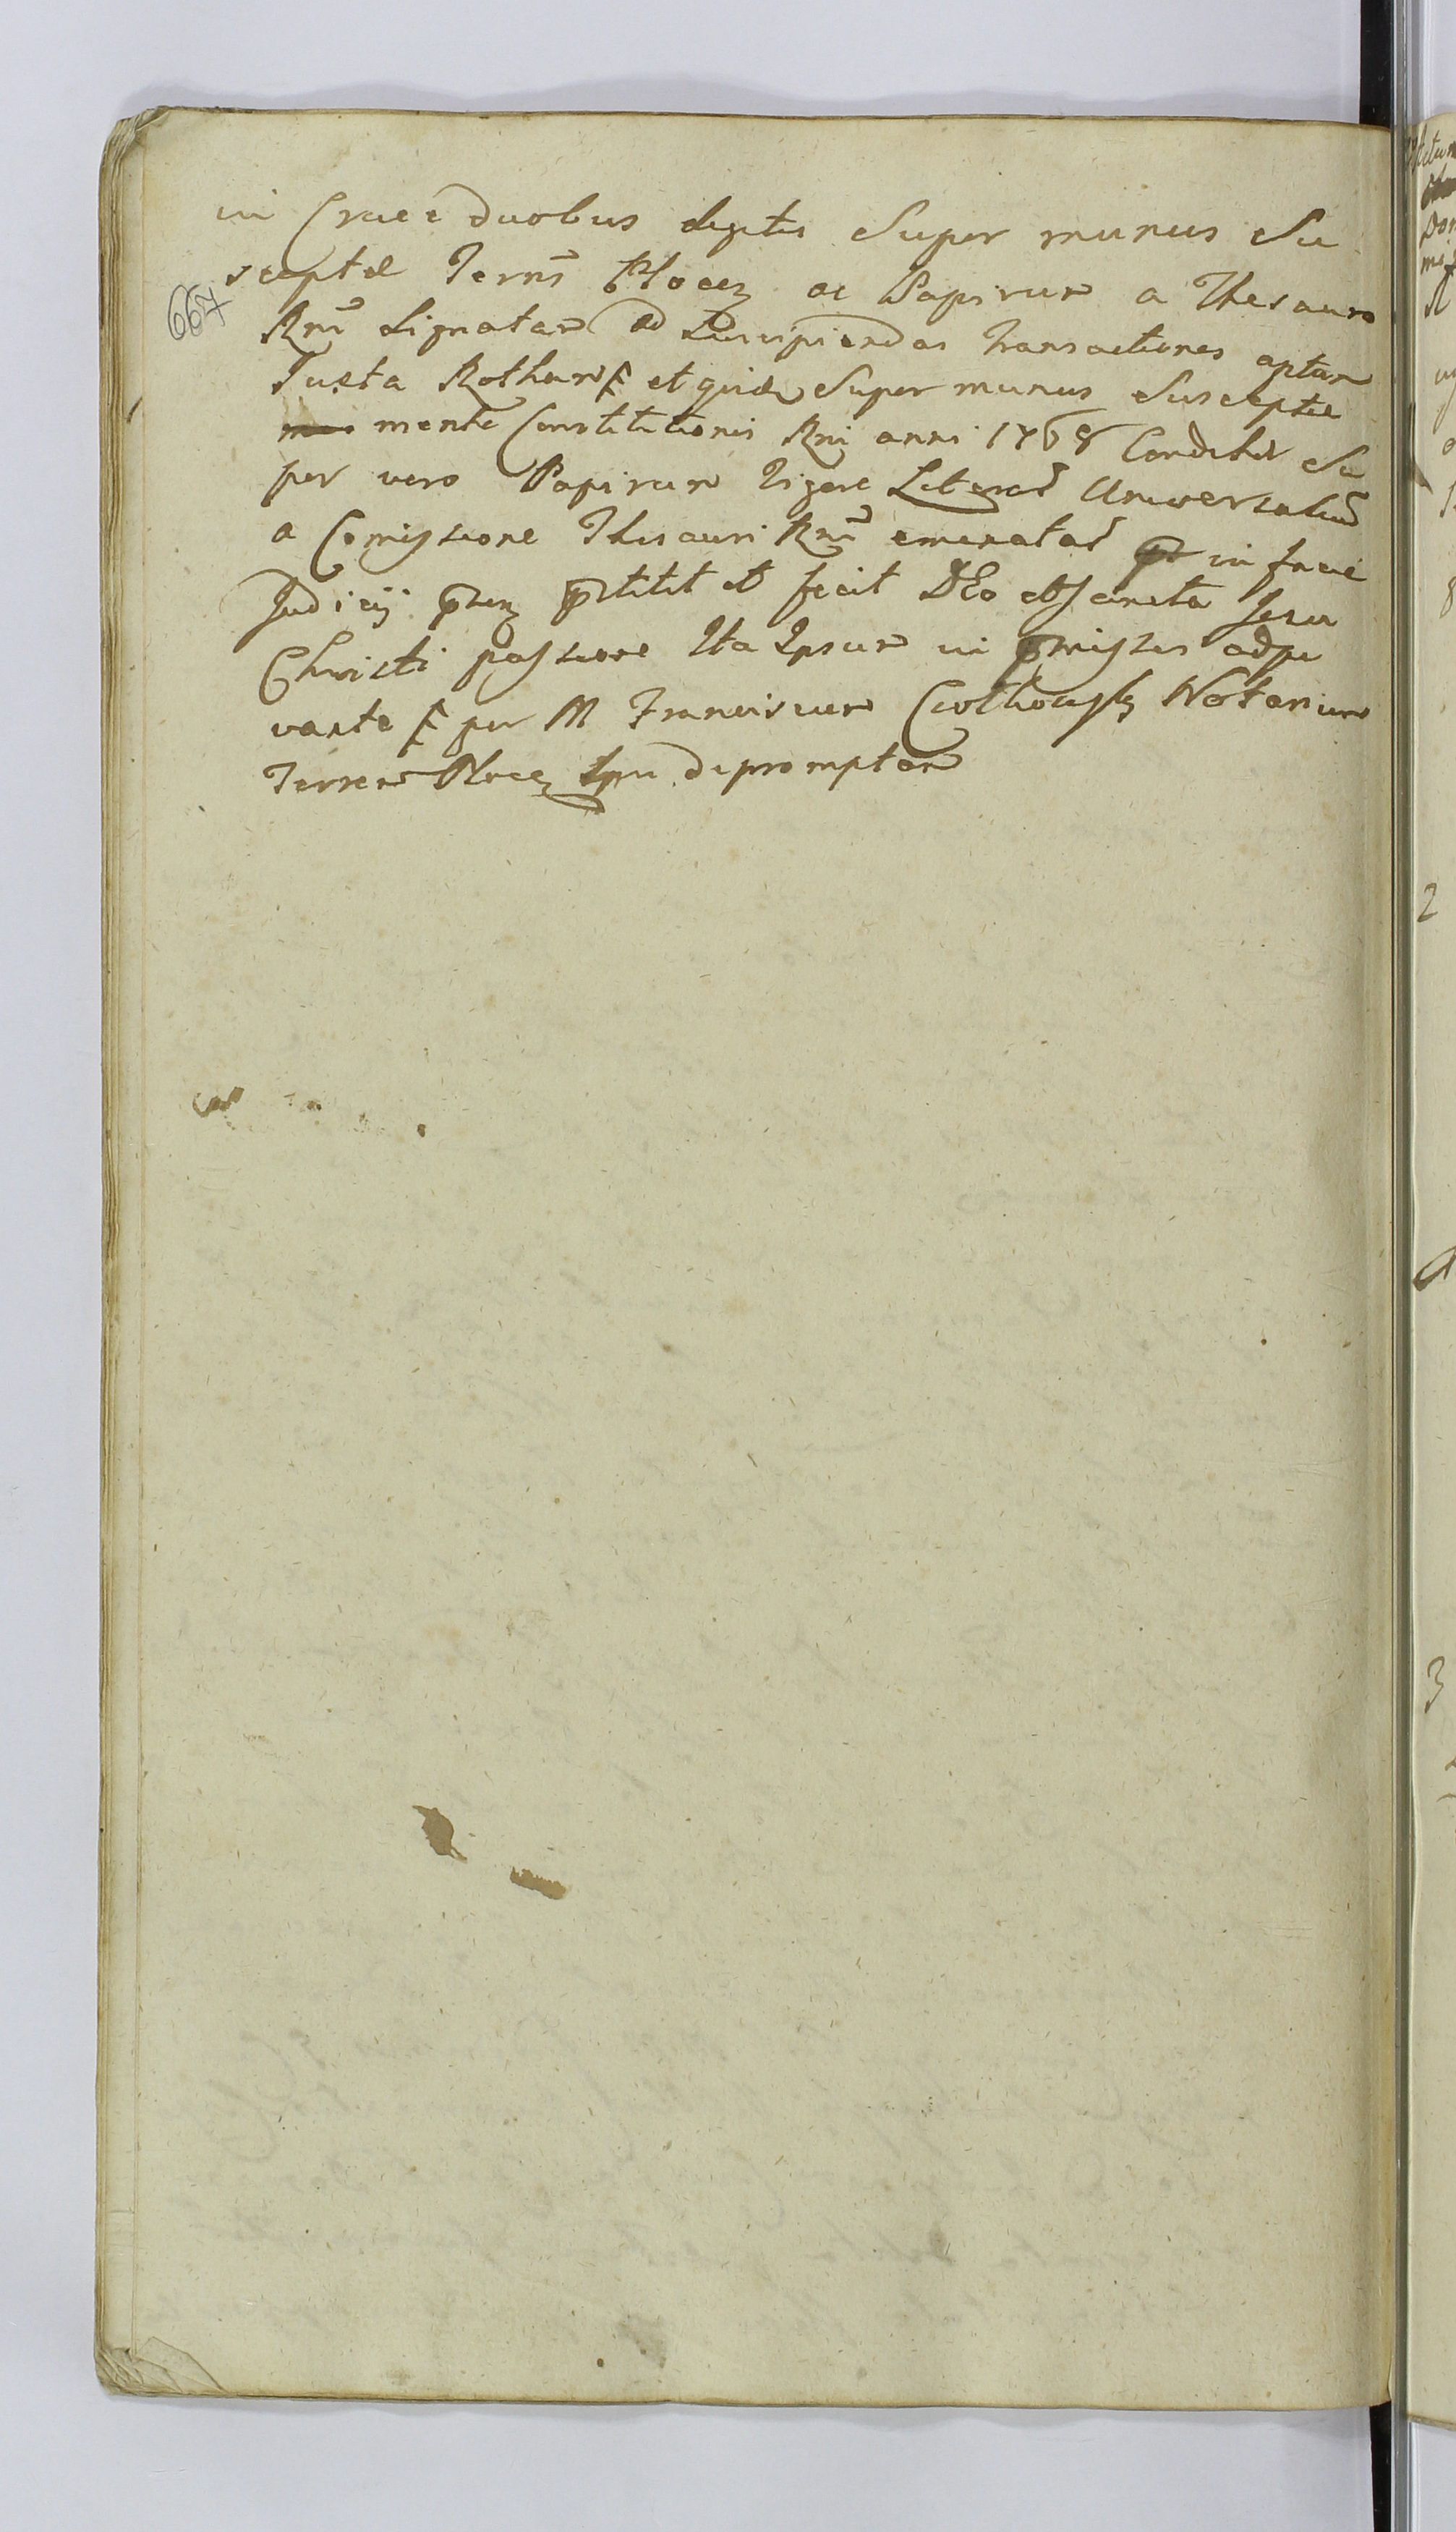 in Cruce duobus digitis Super munus Su
sceptae Terrae Plocen ac Papirum a Thesauro
667
Rni Signatam ad Suscipiendas transactiones aptam
Juxta Rotham et quidem Super munus Susceptae
mente Constitutionis Rni anni 1768 Condita Su
per vero Papirum Vigore Literar Universalium
a Comissione Thesauri Rni emanatar in facie
Judicij pnen pstitit et fecit DEo et sancta Jesu
Christi passione Ita Ipsum in pmissis adju
vante per M Franciscum Notarium
Terren Plocen depromptam